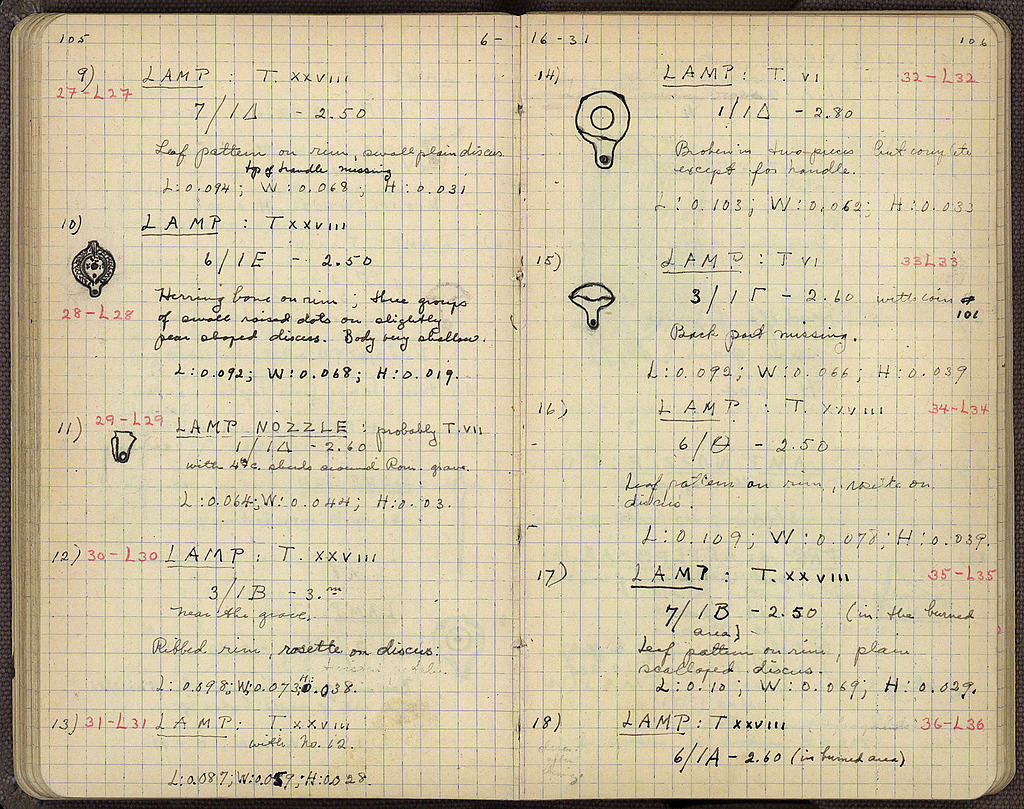 105
6 -
9) LAMP : T. XXVIII
27-L27
7/1Δ - 2.50
Leaf pattern on rim, small plain discus.
top of handle missing
L: 0.094; W: 0.068; H: 0.031
10) LAMP : T XXVIII
6/1E - 2.50
28-L28
Herring bone on rim; three groups
of small raised dots on slightly
pear shaped discus. Body very shallow.
L: 0.092; W: 0.068; H: 0.019.
29-L29
11) LAMP NOZZLE : probably T. VII
1/1Δ - 2.60
with 4th c. sherds around Rom. grave.
L: 0.064; W: 0.044; H: 0.03.
12) 30-L30 LAMP : T. XXVIII
3/1B - 3.m
near the grave.
Ribbed rim, rosette on discus.
L: 0.098; W: 0.073; H: 0.038.
13) 31-L31 LAMP : T. XXVIII
with No. 12.
L: 0.087; W: 0.059; H: 0.028
16-31
106
14) LAMP : T. VI 32-L32
1/1Δ - 2.80
Broken in two pieces but complete
except for handle.
L: 0.103; W: 0.062; H: 0.033
15) LAMP : T VI 33L33
3/1Γ - 2.60 with coin #
101
Back part missing.
L: 0.092; W: 0.066; H: 0.039
16) LAMP : T. XXVIII 34-L34
6/Θ - 2.50
Leaf pattern on rim, rosette on
discus.
L: 0.109; W: 0.078; H: 0.039.
17) LAMP : T. XXVIII 35-L35
7/1B - 2.50 (in the burned
area)
Leaf pattern on rim, plain
scalloped discus.
L: 0.10; W: 0.069; H: 0.029.
18) LAMP : T XXVIII 36-L36
6/1A - 2.60 (in burned area)